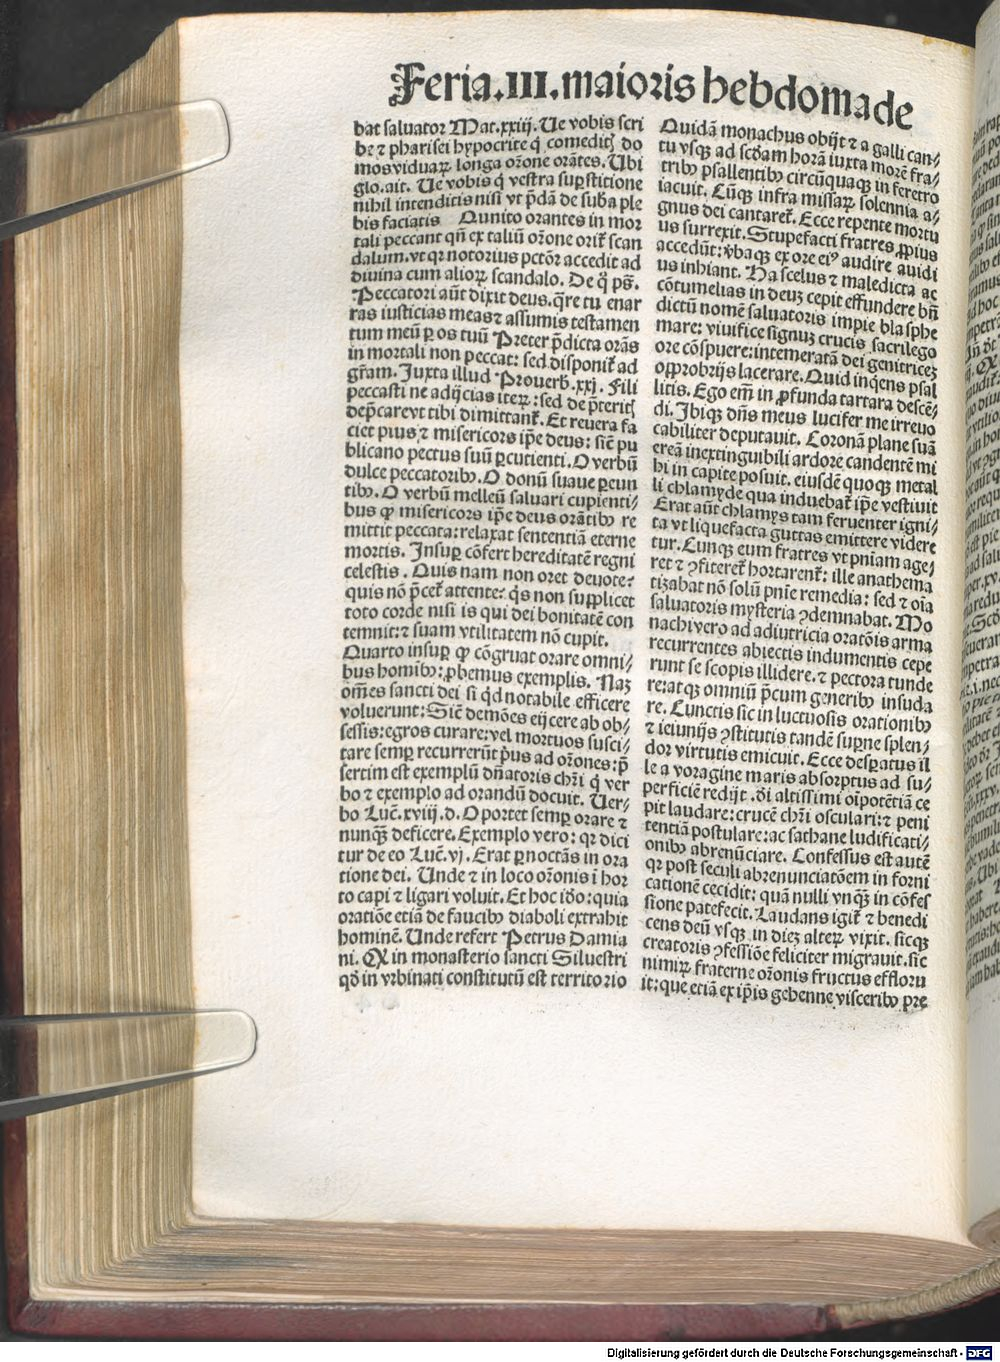 Feria.III.maioris hebdomade
bat saluator Mat.xxiij. Ue vobis scri
be ⁊ pharisei hypocrite q̇ comeditꝭ do
mos viduaꝝ longa orōne orātes. Ubi
glo.ait. Ue vobis q̇ vestra supstitione
nihil intenditis nisi vt p̄dā de suba ple
bis faciatis Quinto orantes in mor
tali peccant qn̄ ex taliū orōne orit̄ scan
dalum.vt qꝛ notorius pctōr accedit ad
diuina cum alioꝝ scandalo. De q̊ ps̄.
Peccatori aūt dixit deus.q̄re tu enar
ras iusticias meas ⁊ assumis testamen
tum meū ꝑ os tuū Preter p̄dicta orās
in mortali non peccat: sed disponit̄ ad
gr̄am. Juxta illud Prouerb̄.xxj. Fili
peccasti ne adijcias iteꝝ: sed de p̄teritꝭ
dep̄care vt tibi dimittant̄. Et reuera fa
ciet pius ⁊ misericors ip̄e deus: sic̄ pu
blicano pectus suū ꝑcutienti. O verbū
dulce peccatoribꝰ. O donū suaue ꝑeun
tibꝰ. O verbū melleū saluari cupienti/
bus ꝙ misericors ip̄e deus orātibꝰ re
mittit peccata: relaxat sententiā eterne
mortis. Insuꝑ cōfert hereditatē regni
celestis. Quis nam non oret deuote?
quis nō p̄cet̄ attente? q̇s non supplicet
toto corde nisi is qui dei bonitatē con
temnit: ⁊ suam vtilitatem nō cupit.
Quarto insuꝑ ꝙ cōgruat orare omni/
bus homibꝰ: ꝓbemus exemplis. Naꝫ
om̄es sancti dei si q̇d notabile efficere
voluerunt: Sic̄ demōes eijcere ab ob/
sessis: egros curare: vel mortuos susci/
tare semꝑ recurrerūt p̄us ad orōnes: p̄
sertim est exemplū dn̄atoris chr̄i q̇ ver
bo ⁊ exemplo ad orandū docuit. Uer/
bo Luc̄.xviij.d. Oportet semꝑ orare ⁊
nunqꝫ deficere. Exemplo vero: qꝛ dici
tur de eo Luc̄.vj. Erat ꝑnoctās in ora
tione dei. Unde ⁊ in loco orōnis ī hor
to capi ⁊ ligari voluit. Et hoc iđo: quia
oratiōe etiā de faucibꝰ diaboli extrahit
hominē. Unde refert Petrus Damia
ni. Qꝫ in monasterio sancti Siluestri
qđ in vrbinati constitutū est territorio
Quidā monachus obijt ⁊ a galli can/
tu vsqꝫ ad scđam horā iuxta morē fra/
tribꝰ psallentibꝰ circūquaqꝫ in feretro
iacuit. Cūqꝫ infra missaꝝ solennia a/
gnus dei cantaret̄. Ecce repente mortu
us surrexit. Stupefacti fratres ꝓpius
accedūt: v̄baqꝫ ex ore eiꝰ audire auidi
us inhiant. Ha scelus ⁊ maledicta ac
cōtumelias in deuꝫ cepit effundere bn̄
dictū nomē saluatoris impie blasphe
mare: viuifice signuꝫ crucis sacrilego
ore cōspuere: intemeratā dei genitriceꝫ
opprobrijs lacerare. Quid inq̇ens psal
litis. Ego em̄ in ꝓfunda tartara descē/
di. Ibiqꝫ dn̄s meus lucifer me irreuo
cabiliter deputauit. Coronā plane suā
ereā inextinguibili ardore candentē mi
hi in capite posuit. eiusdē quoqꝫ metal
li chlamyde qua induebat̄ ip̄e vestiuit
Erat aūt chlamys tam feruenter igni/
ta vt liquefacta guttas emittere videre
tur. Cunqꝫ eum fratres vt pn̄iam age/
ret ⁊ ꝯfiteret̄ hortarent̄: ille anathema
tizabat nō solū pn̄ie remedia: sed ⁊ oīa
saluatoris mysteria ꝯdemnabat. Mo
nachi vero ad adiutricia oratōis arma
recurrentes abiectis indumentis cepe
runt se scopis illidere. ⁊ pectora tunde
re: atqꝫ omniū p̄cum generibꝰ insuda
re. Cunctis sic in luctuosis orationibꝰ
⁊ ieiunijs ꝯstitutis tandē suꝑne splen/
dor virtutis emicuit. Ecce desꝑatus il
le a voragine maris absorptus ad su/
perficiē redijt. đi altissimi oīpotētiā ce
pit laudare: crucē chr̄i osculari: ⁊ peni
tentiā postulare: ac sathane ludificati/
onibꝰ abrenūciare. Confessus est autē
qꝛ post seculi abrenunciatōem in forni
cationē cecidit: quā nulli vnqꝫ in cōfes
sione patefecit. Laudans igit̄ ⁊ benedi
cens deū vsqꝫ in dieꝫ alteꝝ vixit. sicqꝫ
creatoris ꝯfessiōe feliciter migrauit. sic
nimiꝝ fraterne orōnis fructus effloru
it: que etiā ex ip̄is gehenne visceribꝰ pre
Digitalisierung gefördert durch die Deutsche Forschungsgemeinschaft - DFG